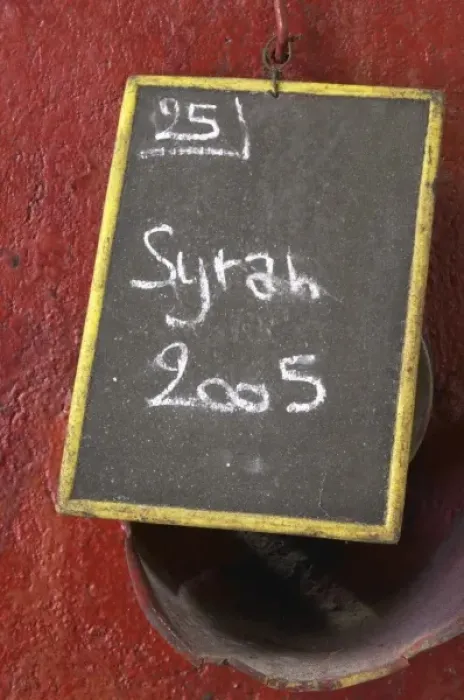 25
Syrah
2005